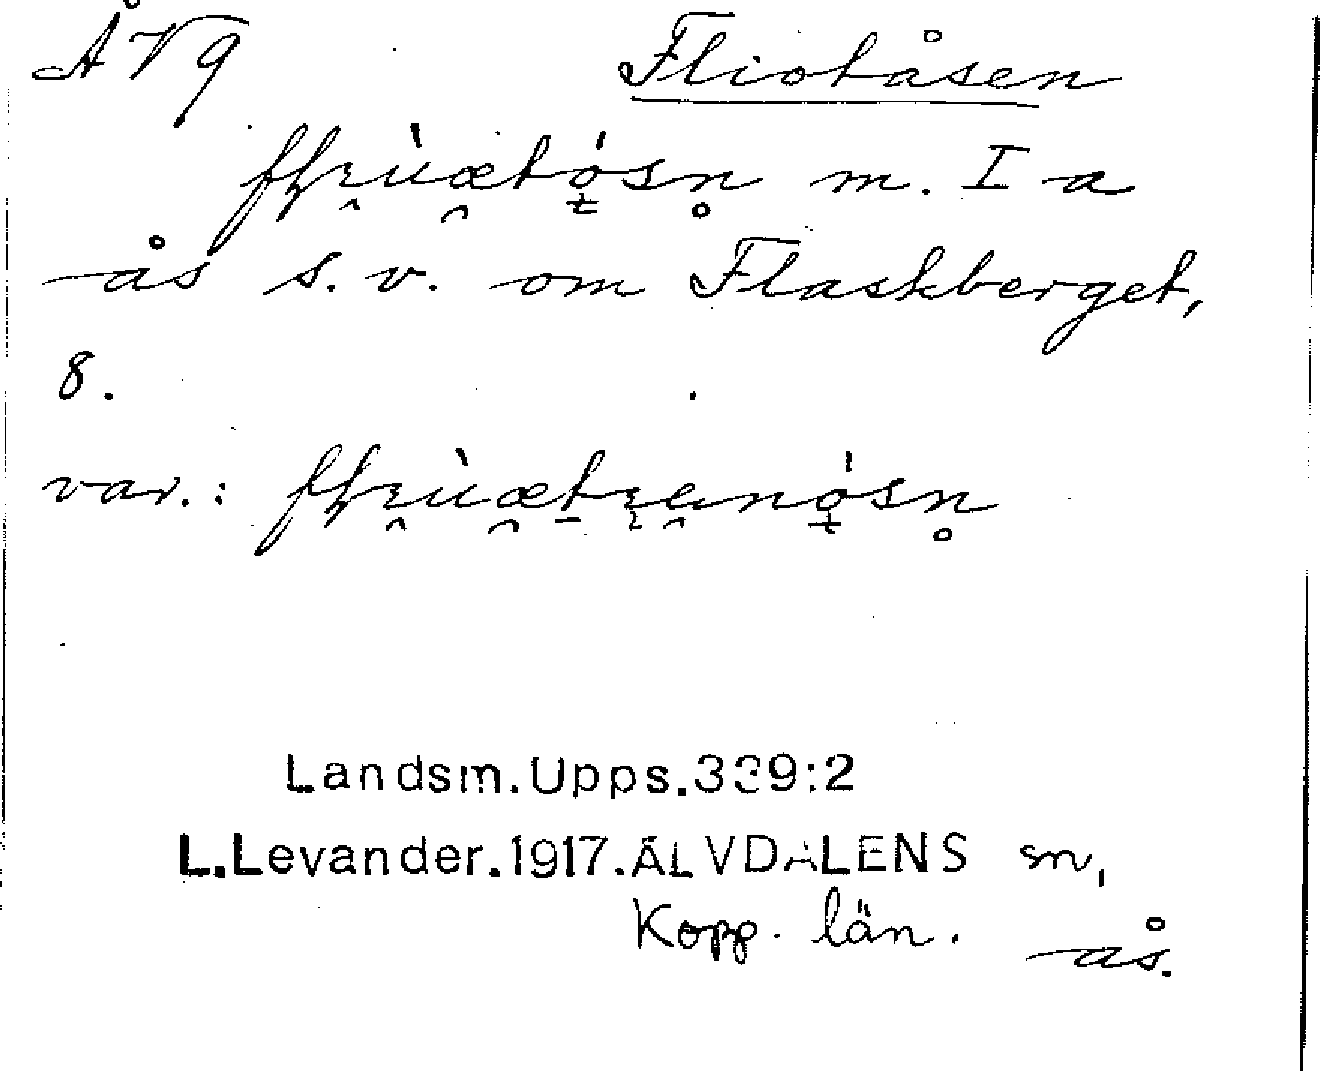 ÅVg Fliotåsen
m. I a
ås s.v. om Flaskberget,
8.
var.:
Landsm.Upps.339:2
L.Levander.1917.ÄLVDALENS sn,
Kopp. län.
ås.